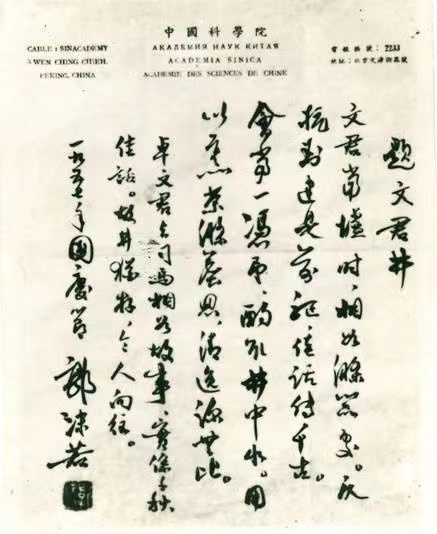 中國科學院
АКАДЕМИЯ НАУК КИТАЯ
ACADEMIA SINICA
ACADEMIE DES SCIENCES DE CHINE
CABLE : SINACADEMY
3 WEN CHING CHIEH.
PEKING, CHINA
電報掛號:2233
地址:北京文津街三號
題文君井
文君當壚時,相如滌器處。反
抗封建是前驅,佳話傳千古。
會當一憑吊,酌取井中水。用
以烹茶滌塵思,清逸諒無比。
卓文君与司馬相如故事,實係千秋
佳話。故井猶存,令人向往。
一九五七年國慶節 郭沫若